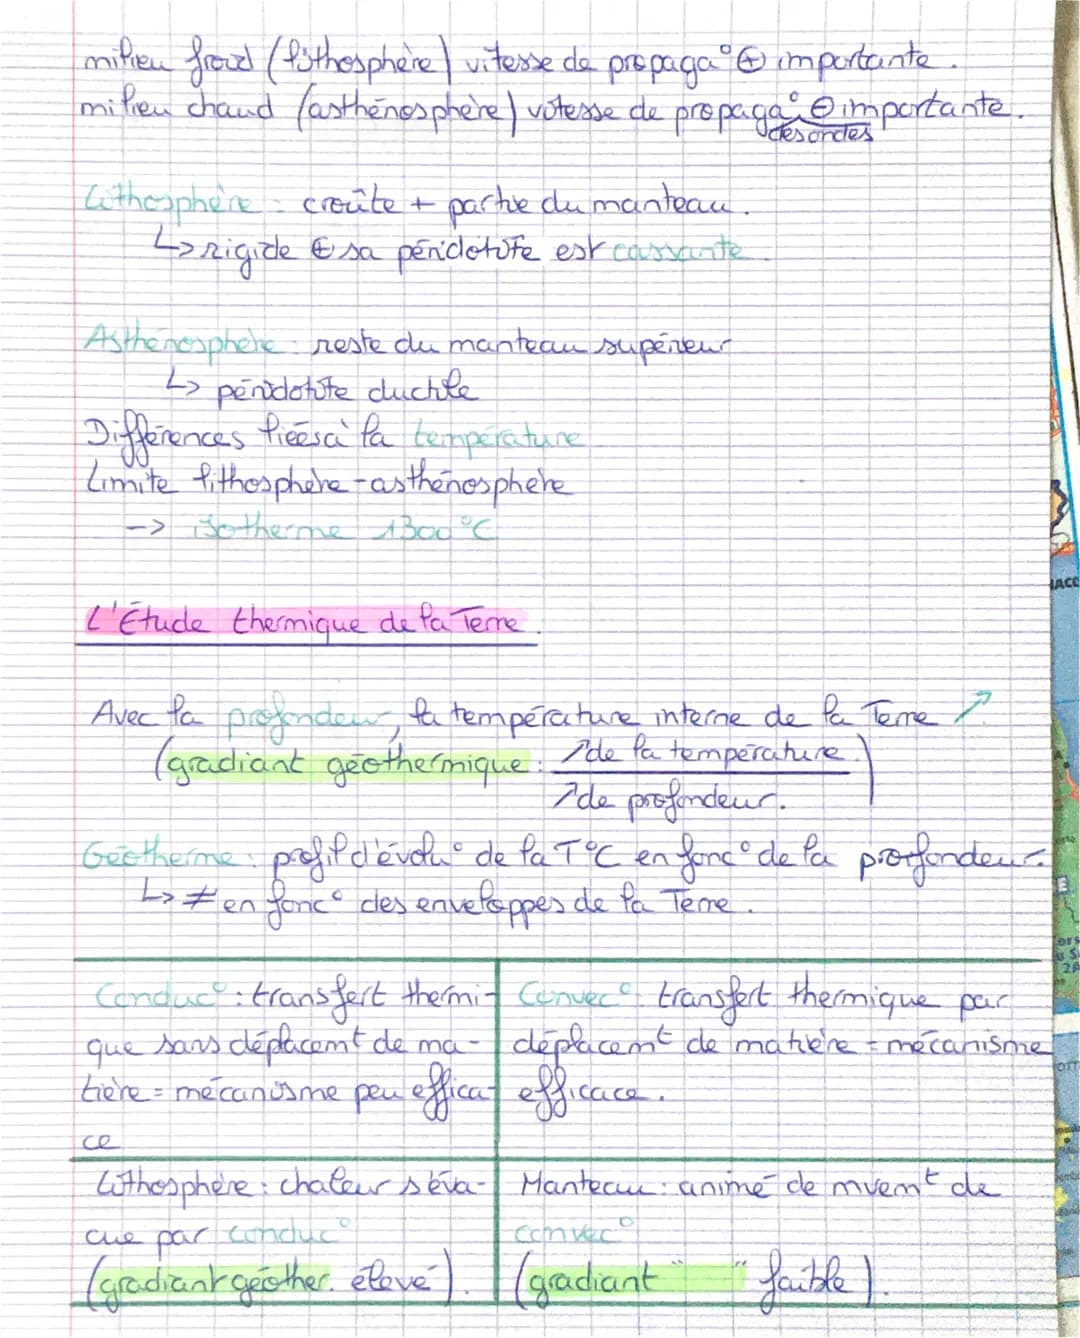 milieu froid (lithosphère) vitesse de propaga° ⊕ importante.
milieu chaud (asthénosphère) vitesse de propaga° ⊖ importante.
des ondes
Lithosphère : croûte + partie du manteau.
↳ rigide et sa péridotite est cassante
Asthénosphère : reste du manteau supérieur
↳ péridotite ductile
Différences liées à la température
Limite lithosphère-asthénosphère
-> isotherme 1300°C
L'Étude thermique de la Terre.
Avec la profondeur, la température interne de la Terre ↗.
(gradiant géothermique : ↗ de la température.)
↗ de profondeur.
Géotherme : profil d'évolu° de la T°C en fonc° de la profondeur.
↳ ≠ en fonc° des enveloppes de la Terre.
Conduc° : transfert thermi-
que sans déplacemt de ma-
tière = mécanisme peu effica-
ce
Convec° : transfert thermique par
déplacemt de matière = mécanisme
efficace.
Lithosphère : chaleur s'éva-
cue par conduc°
(gradiant géother. élevé).
Manteau : animé de mvemt de
convec°
(gradiant " " faible).